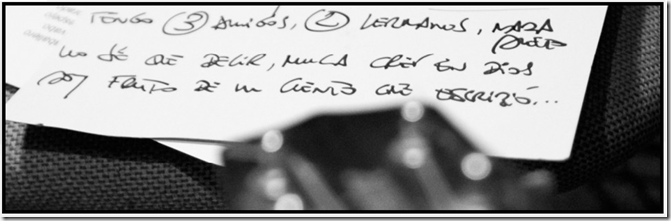 TENGO 3 AMIGOS, 2 HERMANOS, NADA
NO SÉ QUE DECIR, NUNCA CREÍ EN DIOS
SOY FRUTO DE UN CUENTO QUE ESCRIBIÓ...